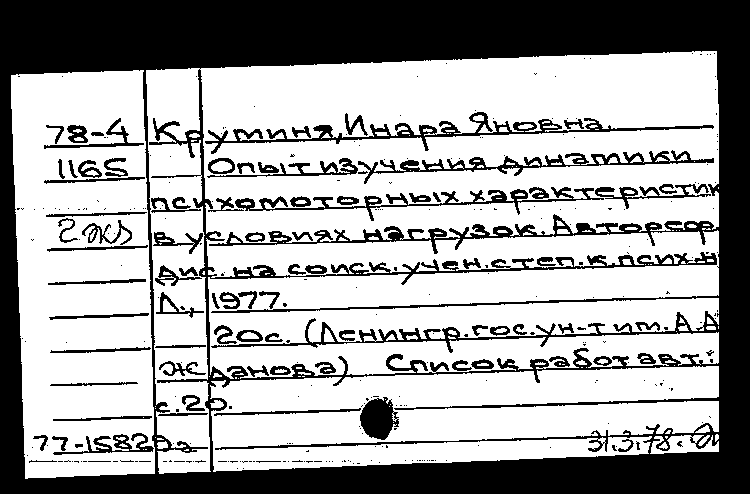 78-4 Круминя, Инара Яновна.
1165 Опыт изучения динамики
психомоторных характеристик
2 экз в условиях нагрузок. Автореф.
дис. на соиск. учен. степ. к. псих. н
Л., 1977.
20с. (Ленингр. гос. ун-т им. А.А
Жданова) Список работ авт.:
с.20.
77-15829а 31.3.78.